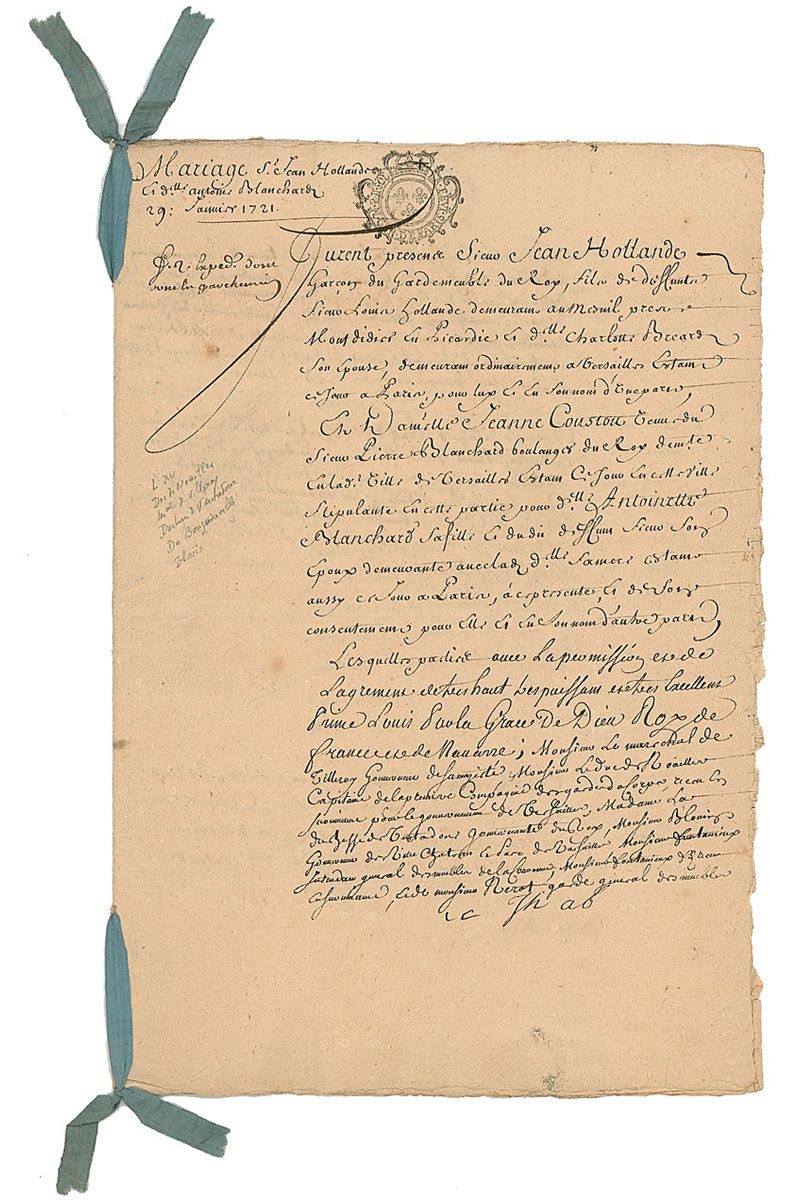 Mariage Sr. Jean Hollande
et d.lle Antoine Blanchard
29: Janvier 1721.
f. 2. Exped. dont
une en parchemin
Furent presens Sieur Jean Hollande
Garçon du Gardemeuble du Roy, fils de deffunts
Sieur Louis Hollande demeurant au Mesnil pres
Montdidier en Picardie et d.lle Charlotte Breard
Son Epouse, demeurant ordinairement a Versailles Estant
ce jour a Paris, pour luy et en son nom d'une part,
Et Damoiselle Jeanne Coustou veuve du
Sieur Pierre Blanchard boulanger du Roy dem.te
en lad. Ville de Versailles Estant ce jour en cette ville
stipulante en cette partie pour d.lle Antoinette
Blanchard sa fille et du dit deffunt Sieur Son
Epoux demeurante avec lad. d.lle sa mere estant
aussy ce jour a Paris, a ce presente, et de son
consentement pour elle et en son nom d'autre part
Lesquelles parties avec la permission et de
L'agrement de tres haut tres puissant et tres Excellent
Prince Louis Par la Grace De Dieu Roy de
France et de Navarre; Monsieur Le marechal de
Villeroy Gouverneur de sa majesté Monsieur Le duc de Noailles
Capitaine de la premiere Compagnie des gardes du corps,
pour le gouvernement de Versailles, Madame La
duchesse de Ventadour gouvernante du Roy, Monsieur Blouin
Gouverneur des Ville Chateau et Parc de Versailles Monsieur Fontanieux
Intendant general des meubles de la Couronne, Monsieur Fontanieux
et de monsieur Nerot garde general des meubles
L XV
Duc de Noailles
mal de Villeroy
Duchesse de Ventadour
De Bougainville
Blouis